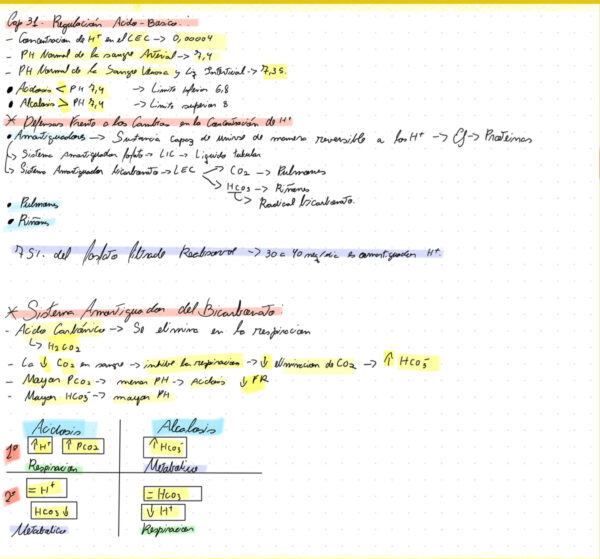 Cap 31. Regulación Acido-Basico
- Concentracion de H⁺ en el LEC -> 0,00004
- PH Normal de la sangre Arterial -> 7,4
- PH Normal de la Sangre Venosa y Liq Intersticial -> 7,35.
• Acidosis < PH 7,4 -> Limite inferior 6,8
• Alcalosis > PH 7,4 -> Limite superior 8
* Defensas Frente a los Cambios en la Concentración de H⁺
• Amortiguadores -> Sustancia capaz de unirse de manera reversible a los H⁺ -> Ej -> Proteinas
↳ Sistema Amortiguador fosfato -> LIC -> Liquido tubular
↳ Sistema Amortiguador bicarbonato -> LEC -> CO2 -> Pulmones
HCO3 -> Riñones
↳ Radical bicarbonato.
• Pulmones
• Riñones
75%. del fosfato filtrado Reabsorve -> 30 a 40 meq/dia es amortiguador H⁺.
* Sistema Amortiguador del Bicarbonato
- Acido Carbónico -> Se elimina en la respiracion
↳ H2CO2
- La ↓ CO2 en sangre -> inhibe la respiracion -> ↓ eliminacion de CO2 -> ↑ HCO3⁻
- Mayor PCO2 -> menor PH -> Acidosis ↓ FR
- Mayor HCO3⁻ -> mayor PH
Acidosis Alcalosis
1º ↑H⁺ ↑PCO2 ↑HCO3
Respiracion Metabolica
2º = H⁺ = HCO3
HCO3 ↓ ↓ H⁺
Metabolica Respiracion